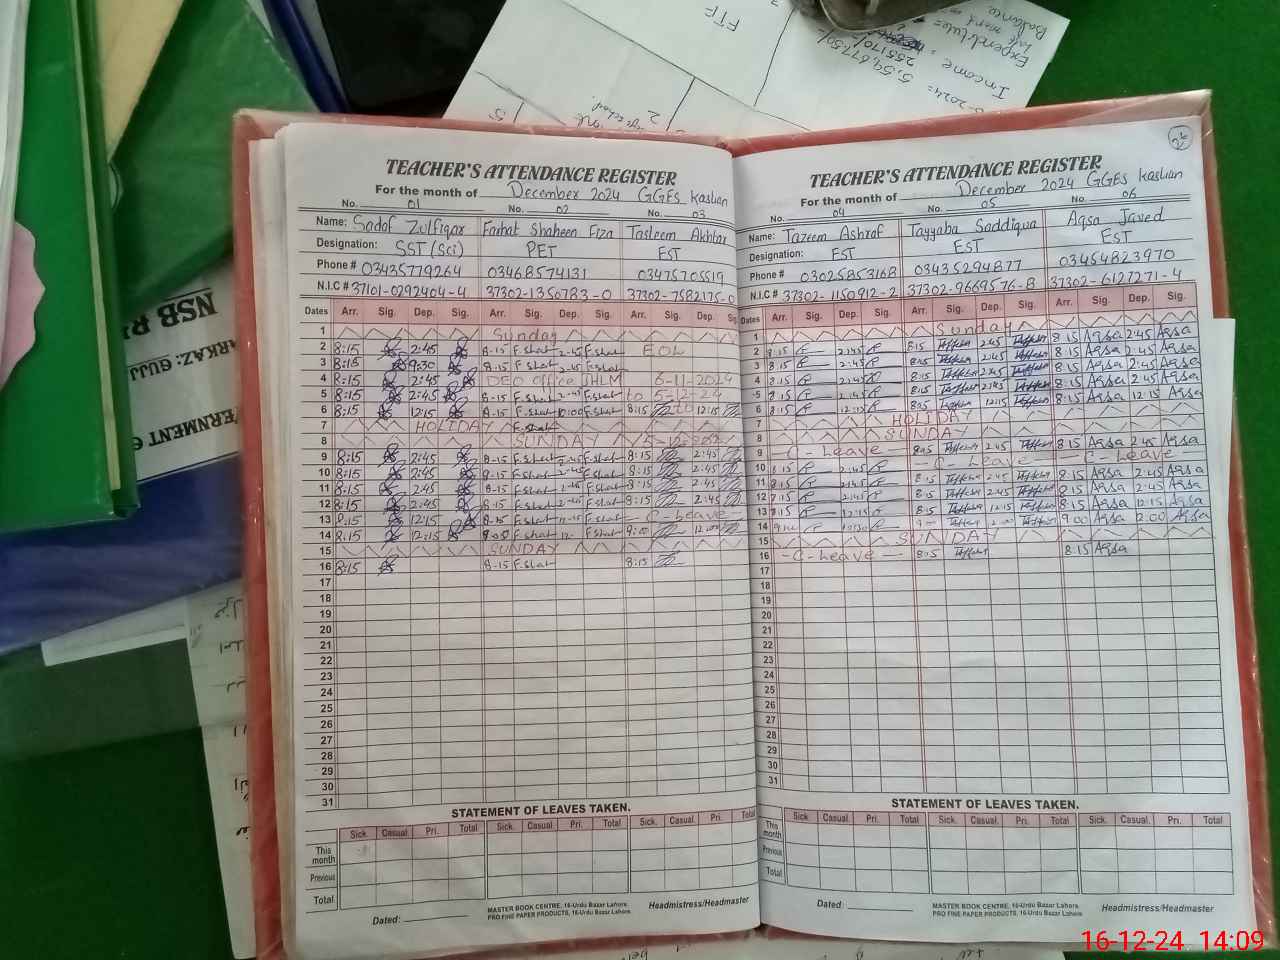 FTF
2
5
Income = 5,59,677.50/-
Expenditure = 255170/-
Balance
NSB
ARKAZ: GUJJ
VERNMENT G
TEACHER'S ATTENDANCE REGISTER
For the month of December 2024 GGES Kaslian
No. 01 No. 02 No. 03
Name: Sadaf Zulfiqar Farhat Shaheen Fiza Tasleem Akhtar
Designation: SST (Sci) PET EST
Phone # 03435779264 03468574131 03475705519
N.I.C # 37101-0292404-4 37302-1350783-0 37302-7582175-0
Dates Arr. Sig. Dep. Sig. Arr. Sig. Dep. Sig. Arr. Sig. Dep. Sig.
1 Sunday
2 8:15 2:45 8-15 F.shat 2-45 F.shat EOL
3 8:15 9:30 8-15 F.shat 2-45 F.shat
4 8:15 2:45 DEO office JHLM 6-11-2024
5 8:15 2:45 8-15 F.shat 2-45 F.shat to 5-12-24
6 8:15 12:15 8-15 F.shat 12:00 F.shat 8:15 12:15
7 HOLIDAY F.shat
8 SUNDAY
9 8:15 2:45 8-15 F.shat 2-45 F.shat 8:15 2:45
10 8:15 2:45 8-15 F.shat 2-45 F.shat 8:15 2:45
11 8:15 2:45 8-15 F.shat 2-45 F.shat 8:15 2:45
12 8:15 2:45 8-15 F.shat 2-45 F.shat 8:15 2:45
13 8:15 12:15 8-15 F.shat 12-15 F.shat - C-Leave -
14 8:15 12:15 9:00 F.shat 12- F.shat 9:00 12:00
15 SUNDAY
16 8:15 8-15 F.shat 8:15
17
18
19
20
21
22
23
24
25
26
27
28
29
30
31
STATEMENT OF LEAVES TAKEN.
Sick. Casual. Pri. Total Sick. Casual. Pri. Total Sick. Casual. Pri. Total
This month
Previous
Total
Dated:
MASTER BOOK CENTRE, 16-Urdu Bazar Lahore.
PRO FINE PAPER PRODUCTS, 16-Urdu Bazar Lahore.
Headmistress/Headmaster
TEACHER'S ATTENDANCE REGISTER
For the month of December 2024 GGES Kaslian
No. 04 No. 05 No. 06
Name: Tazeem Ashraf Tayyaba Saddiqua Aqsa Javed
Designation: EST EST EST
Phone # 03025853168 03435294877 03454823970
N.I.C # 37302-1150912-2 37302-9669576-8 37302-6127271-4
Dates Arr. Sig. Dep. Sig. Arr. Sig. Dep. Sig. Arr. Sig. Dep. Sig.
1 Sunday
2 8:15 2:45 8:15 2:45 8:15 Aqsa 2:45 Aqsa
3 8:15 2:45 8:15 2:45 8:15 Aqsa 2:45 Aqsa
4 8:15 2:45 8:15 2:45 8:15 Aqsa 2:45 Aqsa
5 8:15 2:45 8:15 2:45 8:15 Aqsa 2:45 Aqsa
6 8:15 12:15 8:15 12:15 8:15 Aqsa 12:15 Aqsa
7 HOLIDAY
8 SUNDAY
9 - C-Leave - 8:15 2:45 8:15 Aqsa 2:45 Aqsa
10 8:15 2:45 - C-Leave - - C-Leave -
11 8:15 2:45 8:15 2:45 8:15 Aqsa 2:45 Aqsa
12 8:15 2:45 8:15 2:45 8:15 Aqsa 2:45 Aqsa
13 8:15 12:15 8:15 12:15 8:15 Aqsa 12:15 Aqsa
14 9:00 2:00 9:00 Aqsa 2:00 Aqsa
15 SUNDAY
16 - C-Leave - 8:15 8:15 Aqsa
17
18
19
20
21
22
23
24
25
26
27
28
29
30
31
STATEMENT OF LEAVES TAKEN.
Sick. Casual. Pri. Total Sick. Casual. Pri. Total Sick. Casual. Pri. Total
This month
Previous
Total
Dated:
MASTER BOOK CENTRE, 16-Urdu Bazar Lahore.
PRO FINE PAPER PRODUCTS, 16-Urdu Bazar Lahore.
Headmistress/Headmaster
16-12-24 14:09